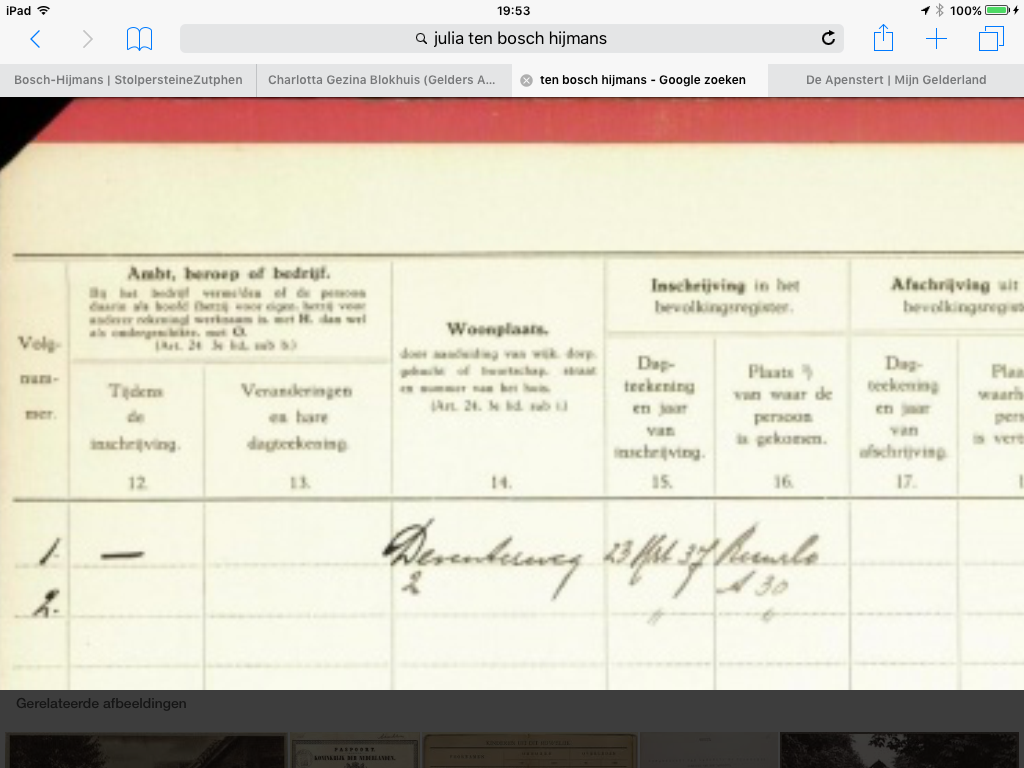 iPad 19:53 100%
julia ten bosch hijmans
Bosch-Hijmans | StolpersteineZutphen
Charlotta Gezina Blokhuis (Gelders A...
ten bosch hijmans - Google zoeken
De Apenstert | Mijn Gelderland
Volg-
num-
mer.
Ambt, beroep of bedrijf.
Bij het bedrijf vermelden of de persoon
daarin als hoofd (hetzij voor eigen, hetzij voor
anderer rekening) werkzaam is, met H. dan wel
als ondergeschikte, met O.
(Art. 24. 3e lid, sub b.)
Tijdens
de
inschrijving.
12.
Veranderingen
en hare
dagteekening.
13.
Woonplaats.
door aanduiding van wijk, dorp,
gehucht of buurtschap, straat
en nummer van het huis.
(Art. 24. 3e lid, sub i.)
14.
Inschrijving in het
bevolkingsregister.
Dag-
teekening
en jaar
van
inschrijving.
15.
Plaats
van waar de
persoon
is gekomen.
16.
Afschrijving uit
bevolkingsregiste
Dag-
teekening
en jaar
van
afschrijving.
17.
Plaa
waarh
pers
is vert
1
1. — Deventerweg 23 37
2 A 30
2. " "
Gerelateerde afbeeldingen
PASPOORT
KONINKRIJK DER NEDERLANDEN.